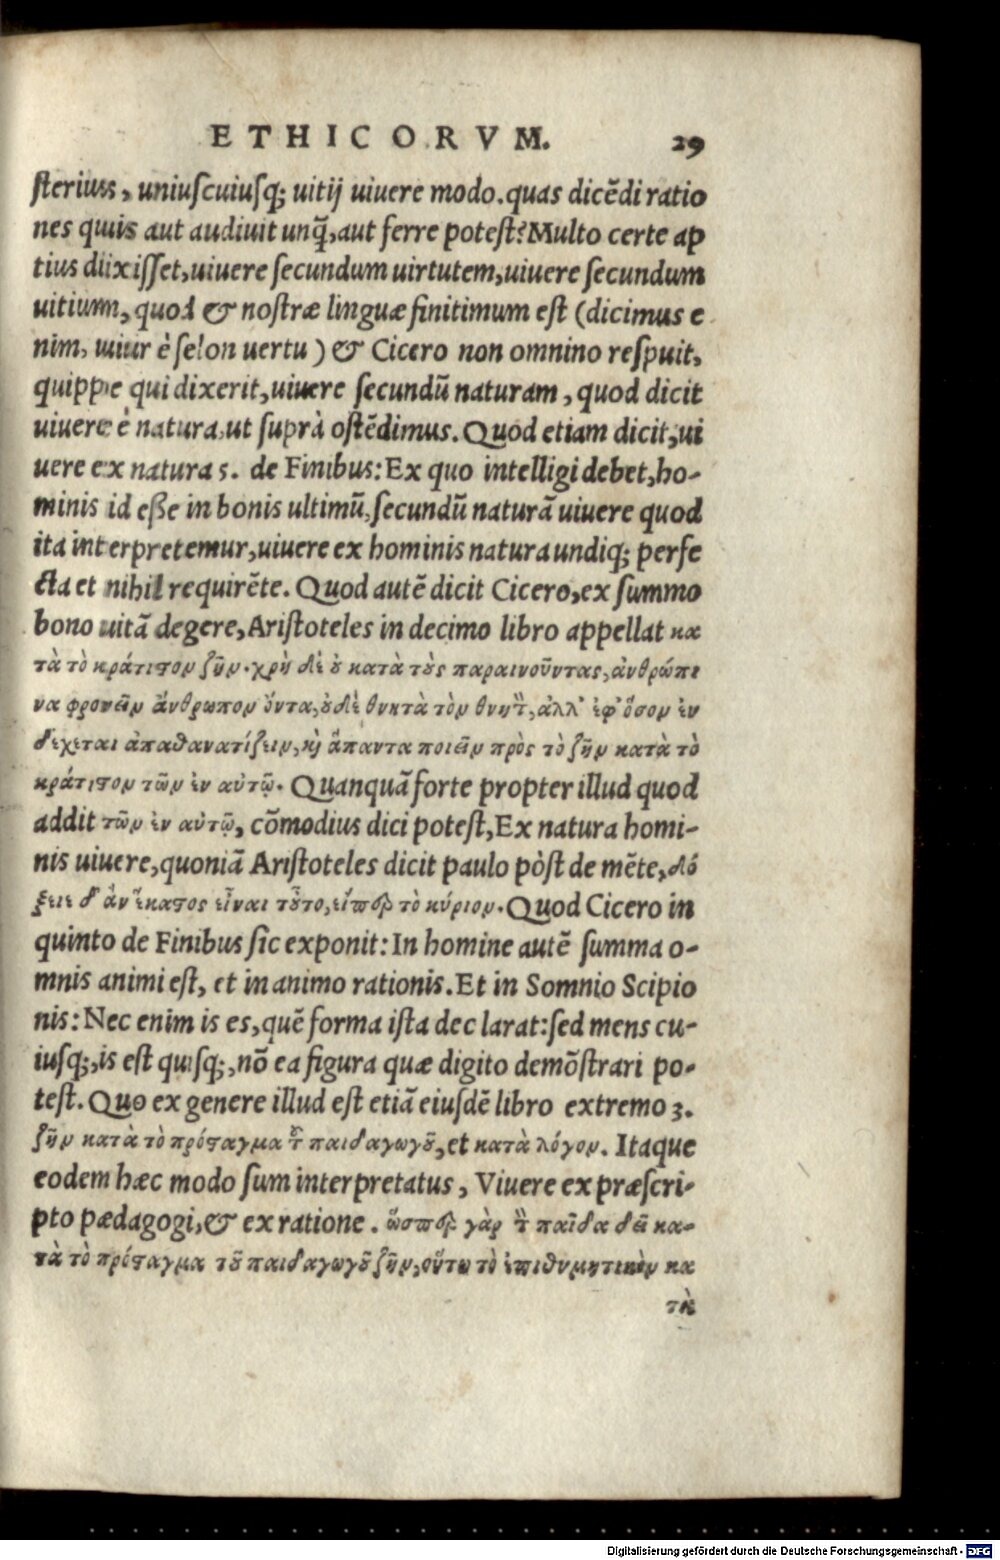 ETHICORVM. 29
ſterius, uniuſcuiuſq; uitij uiuere modo. quas dicẽdi ratio
nes quis aut audiuit unq̃, aut ferre poteſt? Multo certe ap
tius dixiſſet, uiuere ſecundum uirtutem, uiuere ſecundum
uitium, quod & noſtræ linguæ finitimum eſt (dicimus e
nim, uiur è ſelon uertu) & Cicero non omnino reſpuit,
quippe qui dixerit, uiuere ſecundũ naturam, quod dicit
uiuere è natura, ut ſuprà oſtẽdimus. Quod etiam dicit, ui
uere ex natura 5. de Finibus: Ex quo intelligi debet, ho-
minis id eße in bonis ultimũ, ſecundũ naturã uiuere quod
ita interpretemur, uiuere ex hominis natura undiq; perfe
cta et nihil requirẽte. Quod autẽ dicit Cicero, ex ſummo
bono uitã degere, Ariſtoteles in decimo libro appellat κα
τὰ τὸ κράτιϛον ζῆν. χρὴ δὲ ȣ κατὰ τȣ̀ς παραινοῦντας, ἀνθρώπι
να φρονεῖν ἄνθρωπον ὄντα, ȣδὲ θνητὰ τὸν θνητ̀, ἀλλ' ἐφ' ὅσον ἐν
δέχεται ἀπαθανατίζειν, κỳ ἅπαντα ποιεῖν πρὸς τὸ ζῆν κατὰ τὸ
κράτιϛον τῶν ἐν αὐτῷ. Quanquã forte propter illud quod
addit τῶν ἐν αὐτῷ, cõmodius dici poteſt, Ex natura homi-
nis uiuere, quoniã Ariſtoteles dicit paulo pòſt de mẽte, δό
ξειε δ' ἀν ἕκαϛος εἶναι τȣ͂το, εἴπερ τὸ κύριον. Quod Cicero in
quinto de Finibus ſic exponit: In homine autẽ ſumma o-
mnis animi eſt, et in animo rationis. Et in Somnio Scipio
nis: Nec enim is es, quẽ forma iſta declarat: ſed mens cu-
iuſq;, is eſt quiſq;, nõ ea figura quæ digito demõſtrari po-
teſt. Quo ex genere illud eſt etiã eiuſdẽ libro extremo 3.
ζῆν κατὰ τὸ πρόϛαγμα τ͂ παιδαγωγȣ͂, et κατὰ λόγον. Itaque
eodem hæc modo ſum interpretatus, Viuere ex præſcri-
pto pædagogi, & ex ratione. ὥσπερ γὰρ τ̀ παῖδα δεῖ κα-
τὰ τὸ πρόϛαγμα τȣ͂ παιδαγωγȣ͂ ζῆν, οὕτω τὸ ἐπιθυμητικὸν κα
τὰ
Digitalisierung gefördert durch die Deutsche Forschungsgemeinschaft - DFG